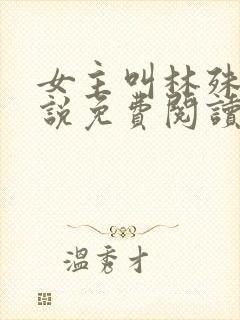 女主叫林殊
說免費閱讀
溫秀才